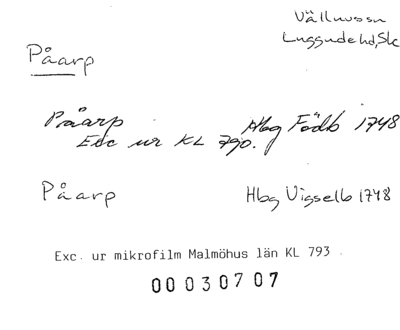 Välluvssn
Luggude hd, Sk
Påarp
Påarp Hbg Födb 1748
Exc ur KL 790.
Påarp Hbg Vigselb 1748
Exc. ur mikrofilm Malmöhus län KL 793
00030707